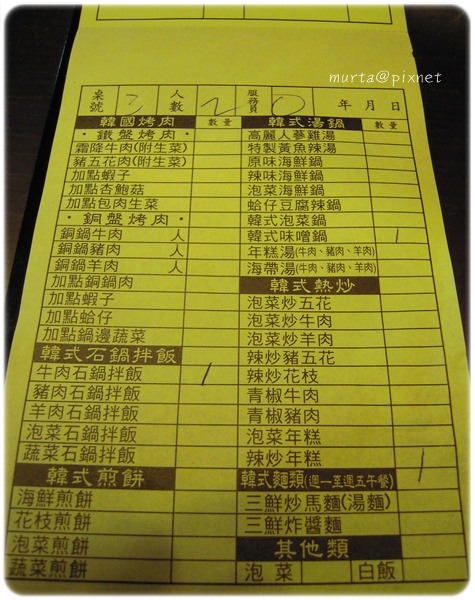 murta@pixnet
桌號 3 人數 2 服務員 0 年 月 日
韓國烤肉 數量
·鐵盤烤肉·
霜降牛肉(附生菜)
豬五花肉(附生菜)
加點蝦子
加點杏鮑菇
加點包肉生菜
·銅盤烤肉·
銅鍋牛肉 人
銅鍋豬肉 人
銅鍋羊肉 人
加點銅鍋肉
加點蝦子
加點蛤仔
加點鍋邊蔬菜
韓式石鍋拌飯
牛肉石鍋拌飯 1
豬肉石鍋拌飯
羊肉石鍋拌飯
泡菜石鍋拌飯
蔬菜石鍋拌飯
韓式煎餅
海鮮煎餅
花枝煎餅
泡菜煎餅
蔬菜煎餅
韓式湯鍋 數量
高麗人蔘雞湯
特製黃魚辣湯
原味海鮮鍋
辣味海鮮鍋
泡菜海鮮鍋
蛤仔豆腐辣鍋
韓式泡菜鍋
韓式味噌鍋 1
年糕湯(牛肉、豬肉、羊肉)
海帶湯(牛肉、豬肉、羊肉)
韓式熱炒
泡菜炒五花
泡菜炒牛肉
泡菜炒羊肉
辣炒豬五花
辣炒花枝
青椒牛肉
青椒豬肉
泡菜年糕
辣炒年糕 1
韓式麵類(週一至週五午餐)
三鮮炒馬麵(湯麵)
三鮮炸醬麵
其他類
泡菜 白飯